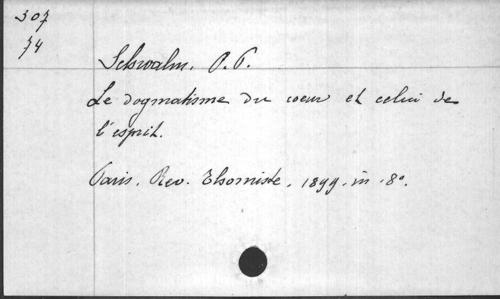 307
74
Schwalm, P. P.
Le dogmatisme du coeur et celui de
l'esprit.
Paris, Rev. Thomiste, 1899, in 8°.